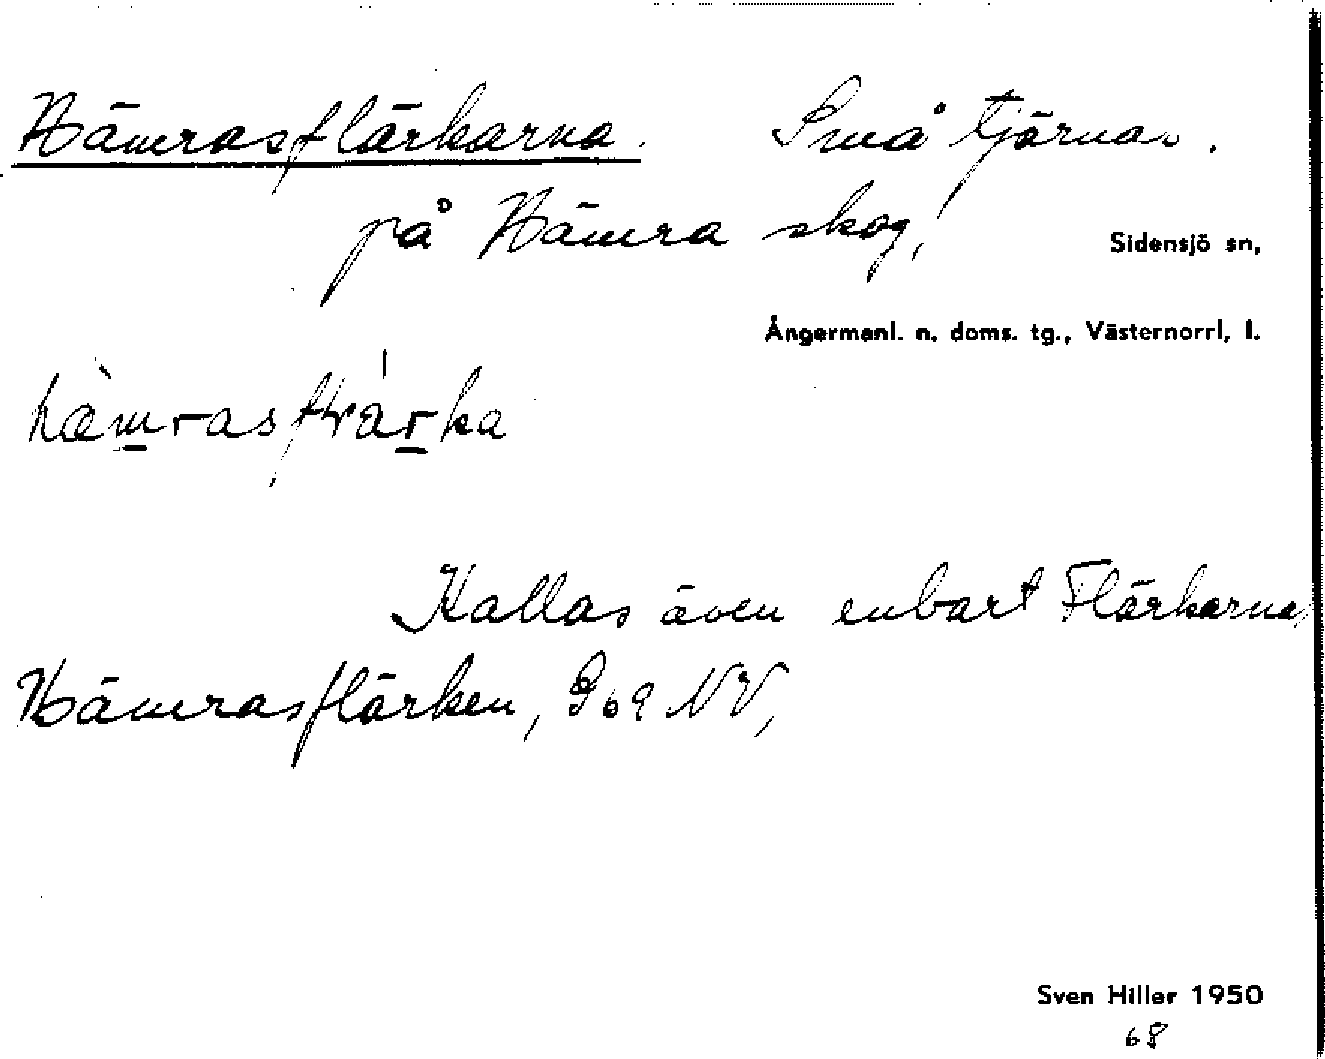 Hämrasflärkarna. Små tjärnar.
på Hämra skog,
Sidensjö sn,
Ångermanl. n. doms. tg., Västernorrl, l.
Kallas även enbart Flärkarna,
Hämrasflärken, NV,
Sven Hiller 1950
68